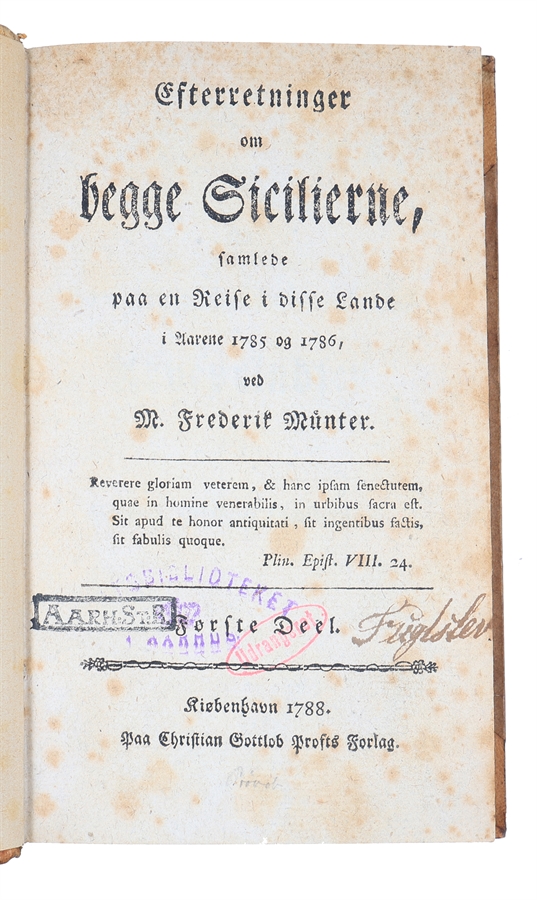 Efterretninger
om
begge Sicilierne,
samlede
paa en Reise i disse Lande
i Aarene 1785 og 1786,
ved
M. Frederik Münter.
Reverere gloriam veterem, & hanc ipsam senectutem,
quae in homine venerabilis, in urbibus sacra est.
Sit apud te honor antiquitati, sit ingentibus factis,
sit fabulis quoque.
Plin. Epist. VIII. 24.
AARH.STB
Udrangeret
Første Deel.
Fuglslev
Kiøbenhavn 1788.
Paa Christian Gottlob Profts Forlag.